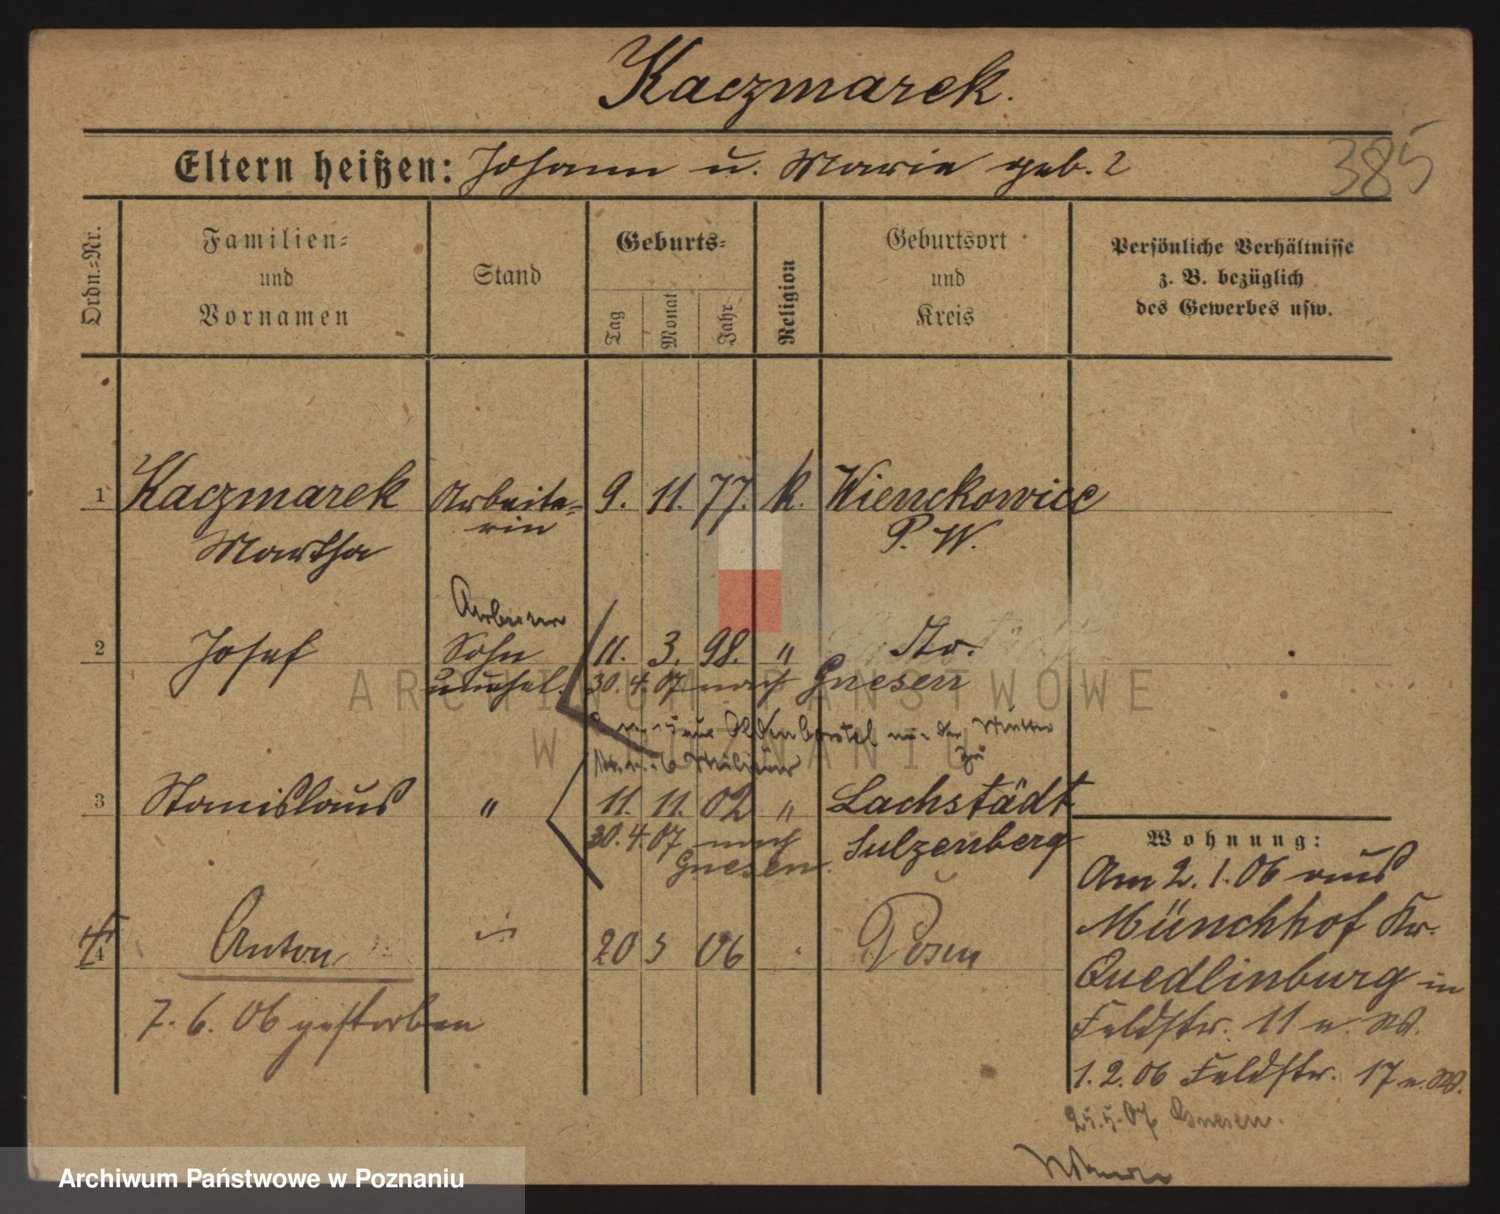 Kaczmarek.
Eltern heißen: Johann u. Marie geb. ?
385
Ordn.-Nr.
Familien-
und
Vornamen
Stand
Geburts-
Tag
Monat
Jahr
Religion
Geburtsort
und
Kreis
Persönliche Verhältnisse
z. B. bezüglich
des Gewerbes usw.
1 Kaczmarek Arbeite- 9. 11. 77. k. Wienckowice
Martha rin P. W.
2 Josef Sohn 11. 3. 98. "
unehel. 30. 4. 07 nach Gnesen
der Mutter
zu
3 Stanislaus " 11. 11. 02 " Lachstädt
30. 4. 07 nach Sulzenberg
Gnesen.
4 Anton 20 5 06 Posen
7. 6. 06 gestorben
Wohnung:
Am 2. 1. 06 aus
Münchhof Kr.
Quedlinburg in
Feldstr. 11 n. W.
1. 2. 06 Feldstr. 17 n. W.
25. 5. 07 Gnesen.
ARCHIWUM PAŃSTWOWE
W POZNANIU
Archiwum Państwowe w Poznaniu